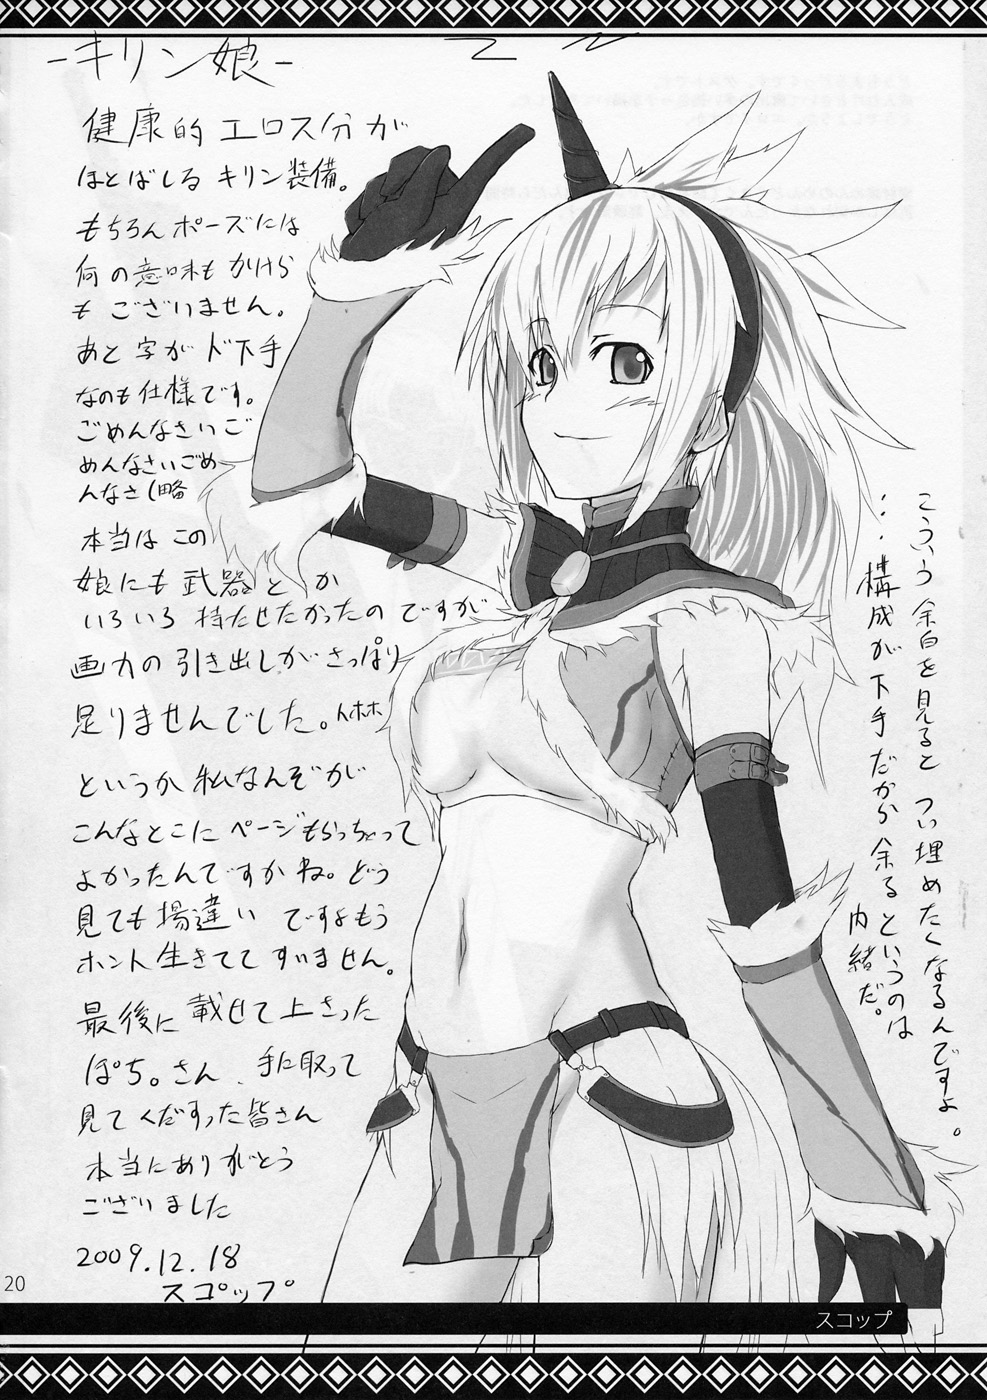 -キリン娘-
健康的エロス分が
ほとばしる キリン装備。
もちろんポーズには
何の意味もかけら
もございません。
あと字がド下手
なのも仕様です。
ごめんなさいご
めんなさいごめ
んなさ(略
本当は この
娘にも武器とか
いろいろ 持たせたかったのですが
画力の引き出しがさっぱり
足りませんでした。
というか私なんぞが
こんなとこにページもらっちゃって
よかったんですかね。どう
見ても場違いですよもう
ホント生きててすいません。
最後に載せて下さった
ぽち。さん、手に取って
見てくだすった皆さん
本当にありがとう
ございました
2009.12.18
スコップ
こういう余白を見ると つい埋めたくなるんですよ。
…構成が下手だから余るというのは
内緒だ。
20
スコップ